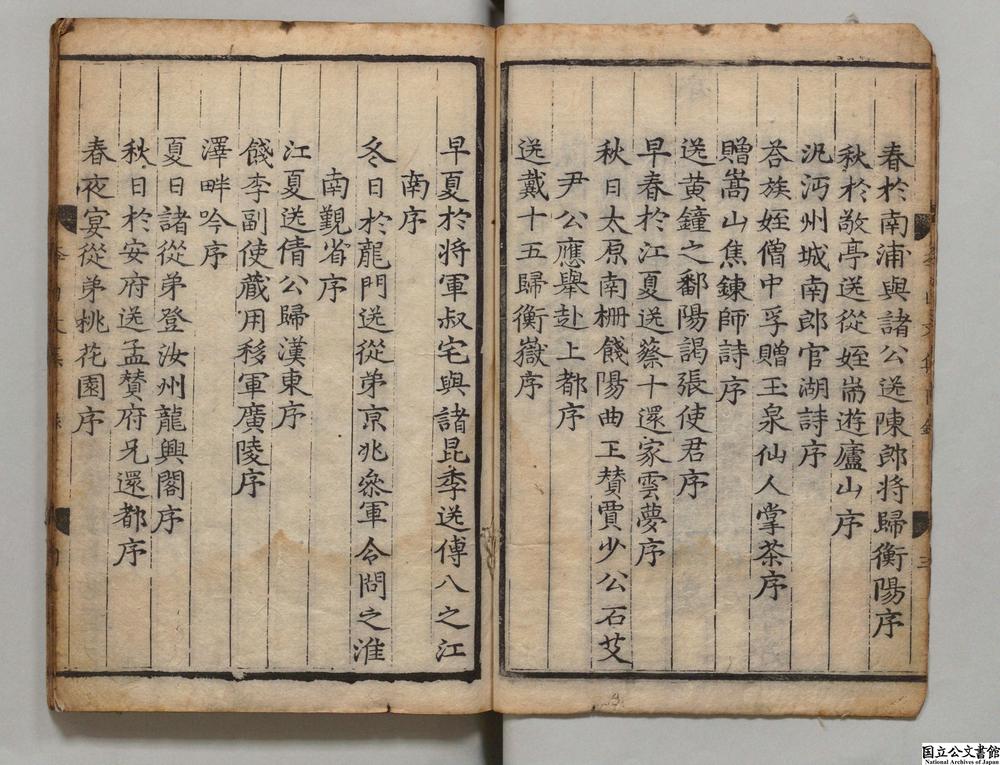 春於南浦與諸公送陳郎将歸衡陽序
秋於敬亭送從姪耑遊廬山序
汎沔州城南郎官湖詩序
荅族姪僧中孚贈玉泉仙人掌茶序
贈嵩山焦鍊師詩序
送黄鐘之鄱陽謁張使君序
早春於江夏送蔡十還家雲夢序
秋日太原南柵餞陽曲王賛賈少公石艾
尹公應舉赴上都序
送戴十五歸衡嶽序
早夏於将軍叔宅與諸昆季送傅八之江
南序
冬日於龍門送從弟京兆叅軍令問之淮
南覲省序
江夏送倩公歸漢東序
餞李副使蔵用移軍廣陵序
澤畔吟序
夏日諸從弟登汝州龍興閣序
秋日於安府送孟賛府兄還都序
春夜宴從弟桃花園序
国立公文書館
National Archives of Japan